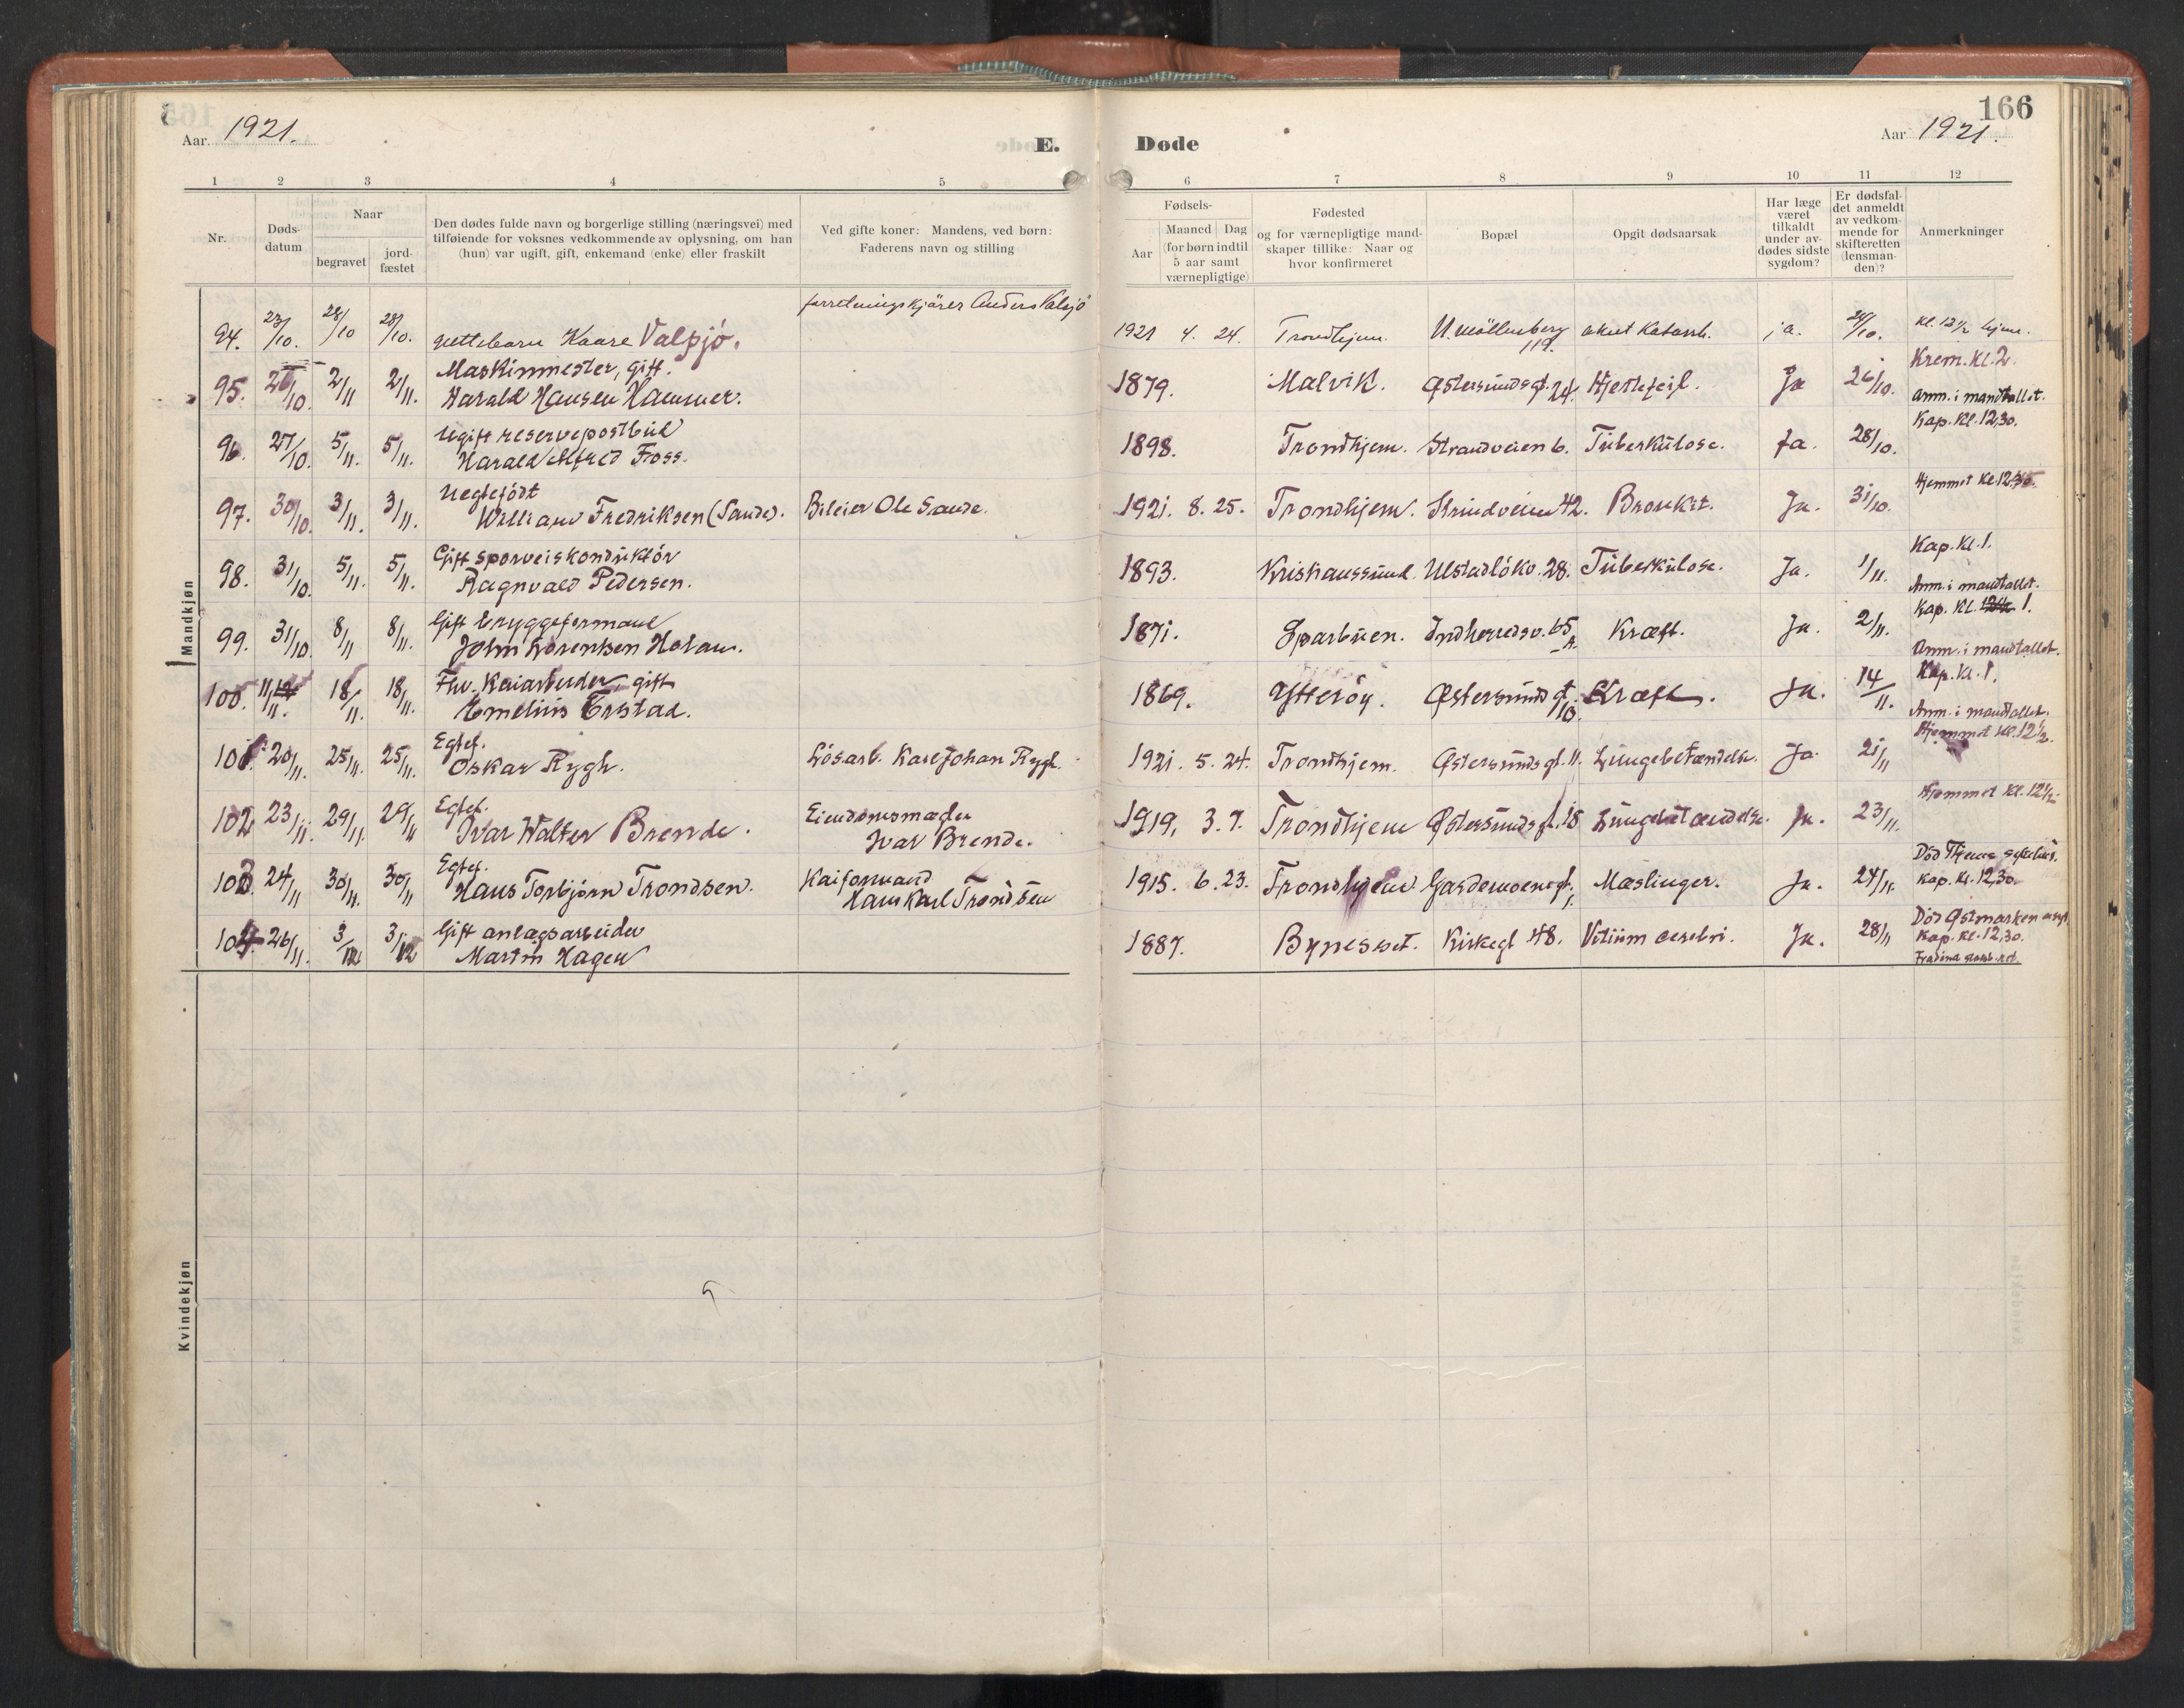 Aar. 1921.
E.
Døde
Aar 1921.
166
1 2 3 4 5 6 7 8 9 10 11 12
Nr.
Døds-
datum
Naar
begravet
jord-
fæstet
Den dødes fulde navn og borgerlige stilling (næringsvei) med
tilføiende for voksnes vedkommende av oplysning, om han
(hun) var ugift, gift, enkemand (enke) eller fraskilt
Ved gifte koner: Mandens, ved børn:
Faderens navn og stilling
Fødsels-
Aar
Maaned Dag
(for børn indtil
5 aar samt
værnepligtige)
Fødested
og for værnepligtige mand-
skaper tillike: Naar og
hvor konfirmeret
Bopæl
Opgit dødsaarsak
Har læge
været
tilkaldt
under av-
dødes sidste
sygdom?
Er dødsfal-
det anmeldt
av vedkom-
mende for
skifteretten
(lensman-
den)?
Anmerkninger
Mandkjøn
forretningskjører Anders Valsjö
94. 23/10. 28/10 28/10. guttebarn Kaare Valsjö. 1921 4. 24. Trondhjem. U. Möllenberg 119. akut Katarrh. ja. 24/10. Kl. 12½ hjem.
95. 26/10. 2/11 2/11. Maskinmester, gift.
Harald Hansen Hammer. 1879. Malvik. Østersundsgt. 24. Hjertefeil. Ja 26/10. Krem. Kl. 2.
Anm. i mandtallet.
96. 27/10. 5/11. 5/11. Ugift reservepostbud
Harald Alfred Foss. 1898. Trondhjem. Strandveien 6. Tuberkulose. Ja. 28/10. Kap. Kl. 12,30.
97. 30/10. 3/11. 3/11. Uegtefödt
William Fredriksen (Sande). Bileier Ole Sande. 1921. 8. 25. Trondhjem. Strindveien 42. Bronkit. Ja. 31/10. Hjemmet Kl. 12
98. 31/10. 5/11. 5/11. Gift sporveiskonduktör
Ragnvald Pedersen. 1893. Kristianssund. Ulstadlökv. 28. Tuberkulose. Ja. 1/11. Kap. Kl. 1.
Anm. i mandtallet.
99. 31/10. 8/11 8/11. Gift bryggeformand
John Lorentsen Holam. 1871. Sparbuen. Indherredsv. 65 A. Kræft. Ja. 2/11. Kap. Kl. 1.
Anm. i mandtallet.
100. 11/11. 18/11. 18/11. Fhv. Kaiarbeider, gift
Emelius Erstad. 1869. Ytteröy. Østersundsgt. 10. Kræft. Ja. 14/11. Kap. Kl. 1.
Anm. i mandtallet.
101. 20/11. 25/11. 25/11. Egtef.
Oskar Rygh. Lösarb. Karl Johan Rygh. 1921. 5. 24. Trondhjem. Østersundsgt. 11. Lungebetændelse. Ja. 21/11 Hjemmet Kl. 12½.
102 23/11. 29/11. 29/11 Egtef.
Ivar Walter Brende. Eiendomsmægler
Ivar Brende. 1919, 3. 7. Trondhjem Østersundsgt. 18 Lungebetændelse. Ja. 23/11. Hjemmet Kl. 12½.
103. 24/11 30/11. 30/11 Egtef.
Hans Torbjörn Trondsen. Kaiformand
Hans Karl Trondsen 1915. 6. 23. Trondhjem Gardemoensgt. 1. Mæslinger. Ja. 24/11. Död Thjems
Kap. Kl. 12,30.
104. 26/11. 3/12 3/12 Gift anlægsarbeider
Martin Hagen 1887. Bynesset. Kirkegt 48. Vitium cerebri. Ja. 28/11 Död Østmarken asyl
Kap. Kl. 12,30.
Kvindekjøn